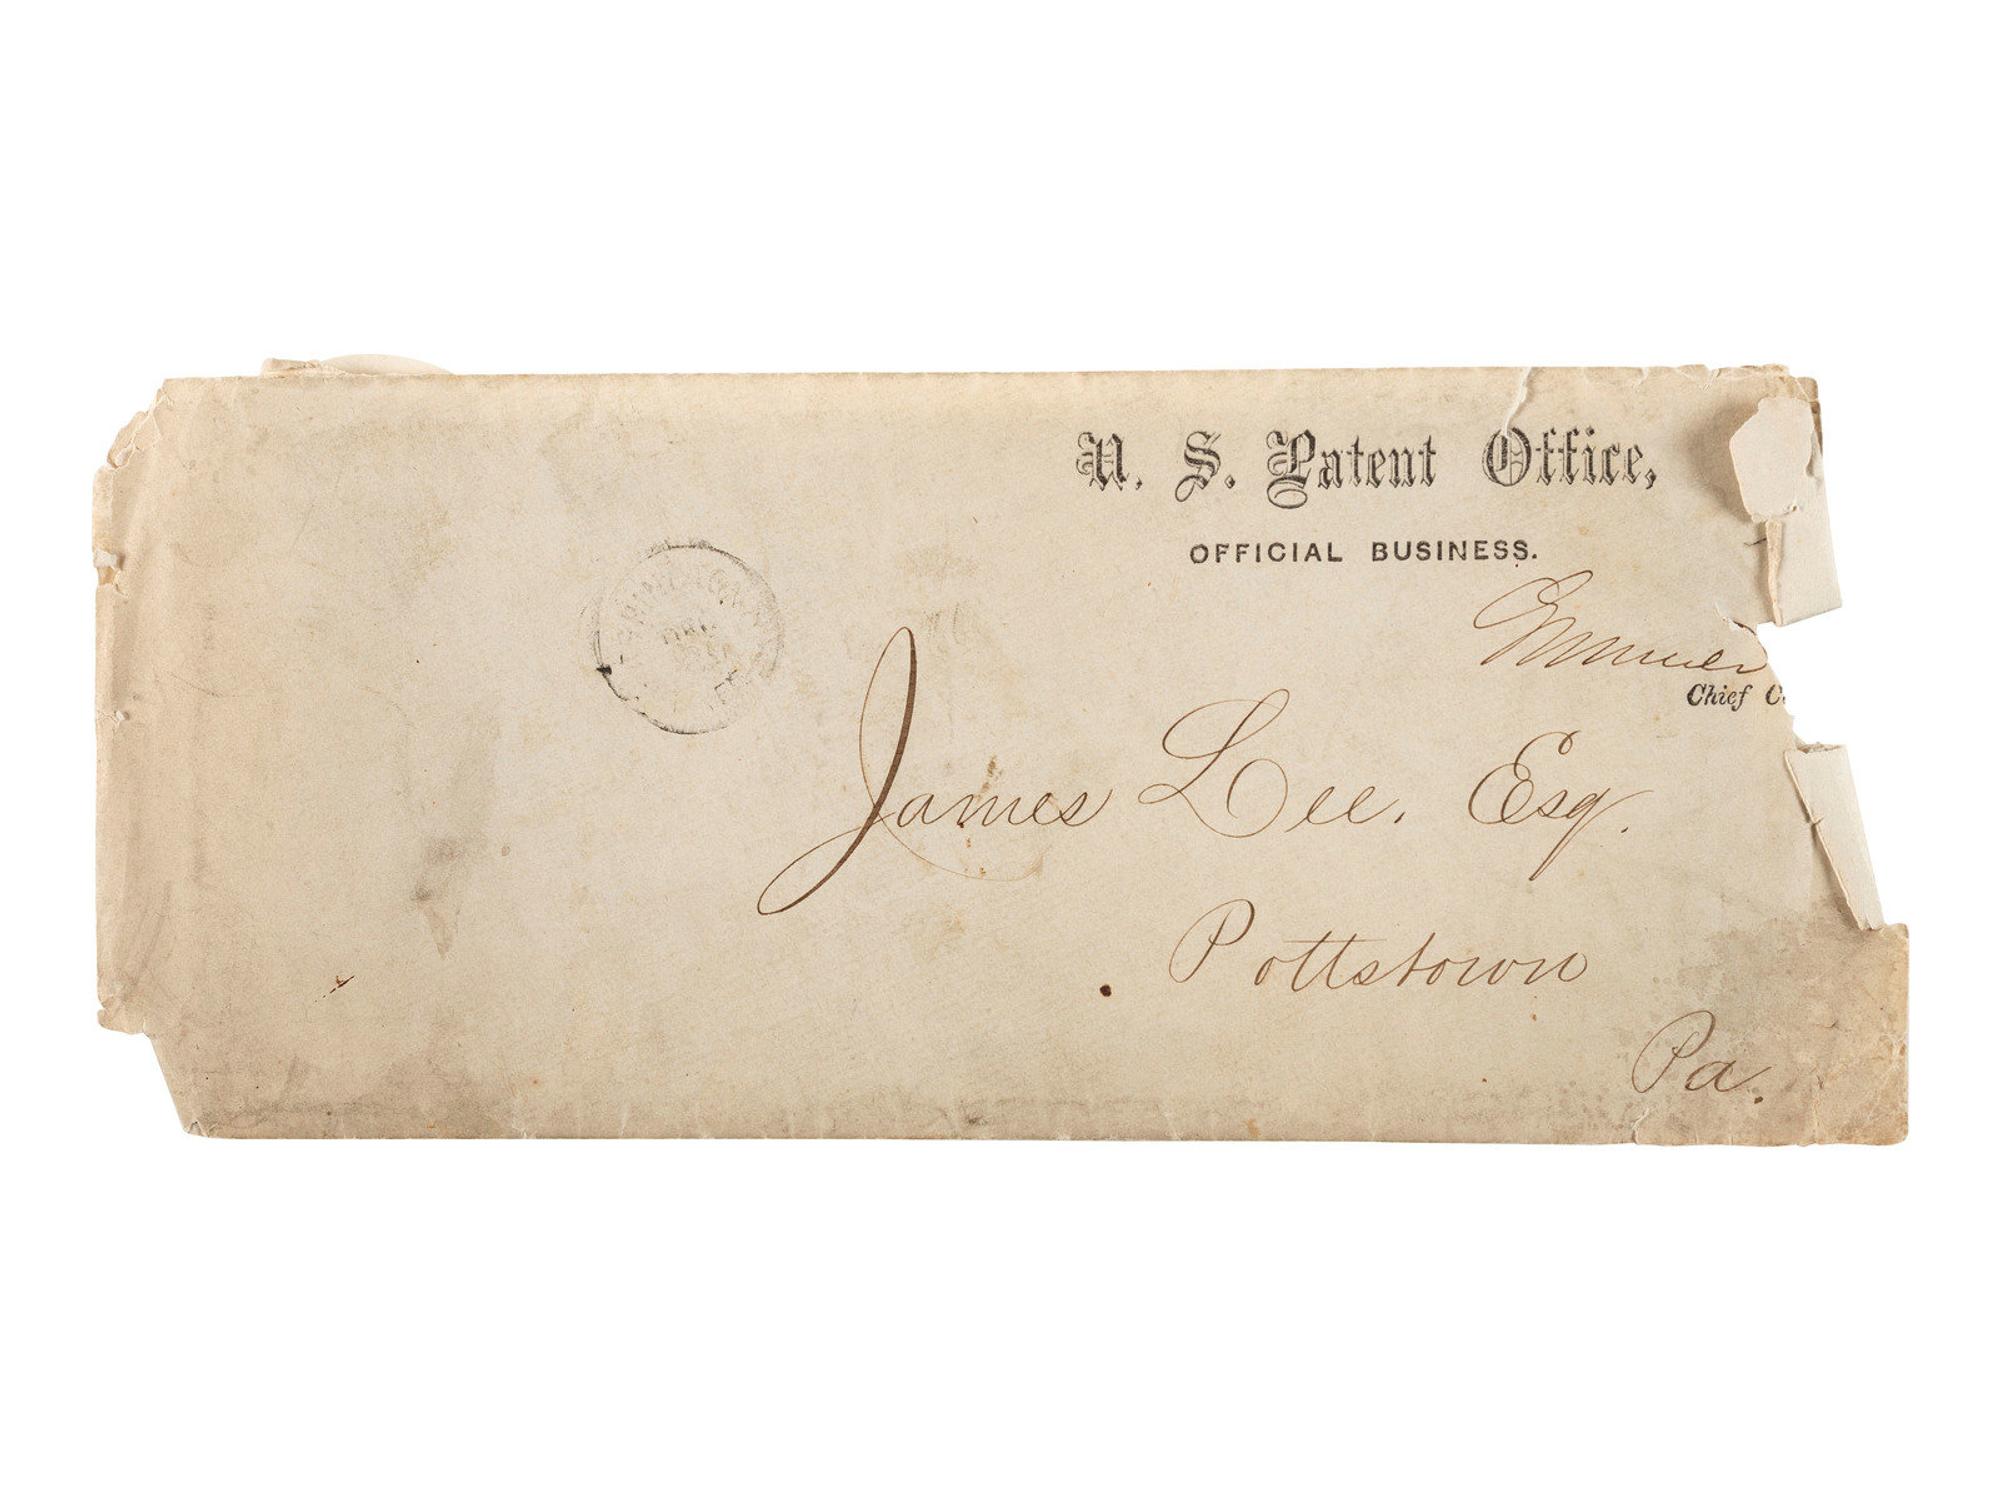 U. S. Patent Office,
OFFICIAL BUSINESS.
Chief C
James Lee. Esq.
Pottstown
Pa.